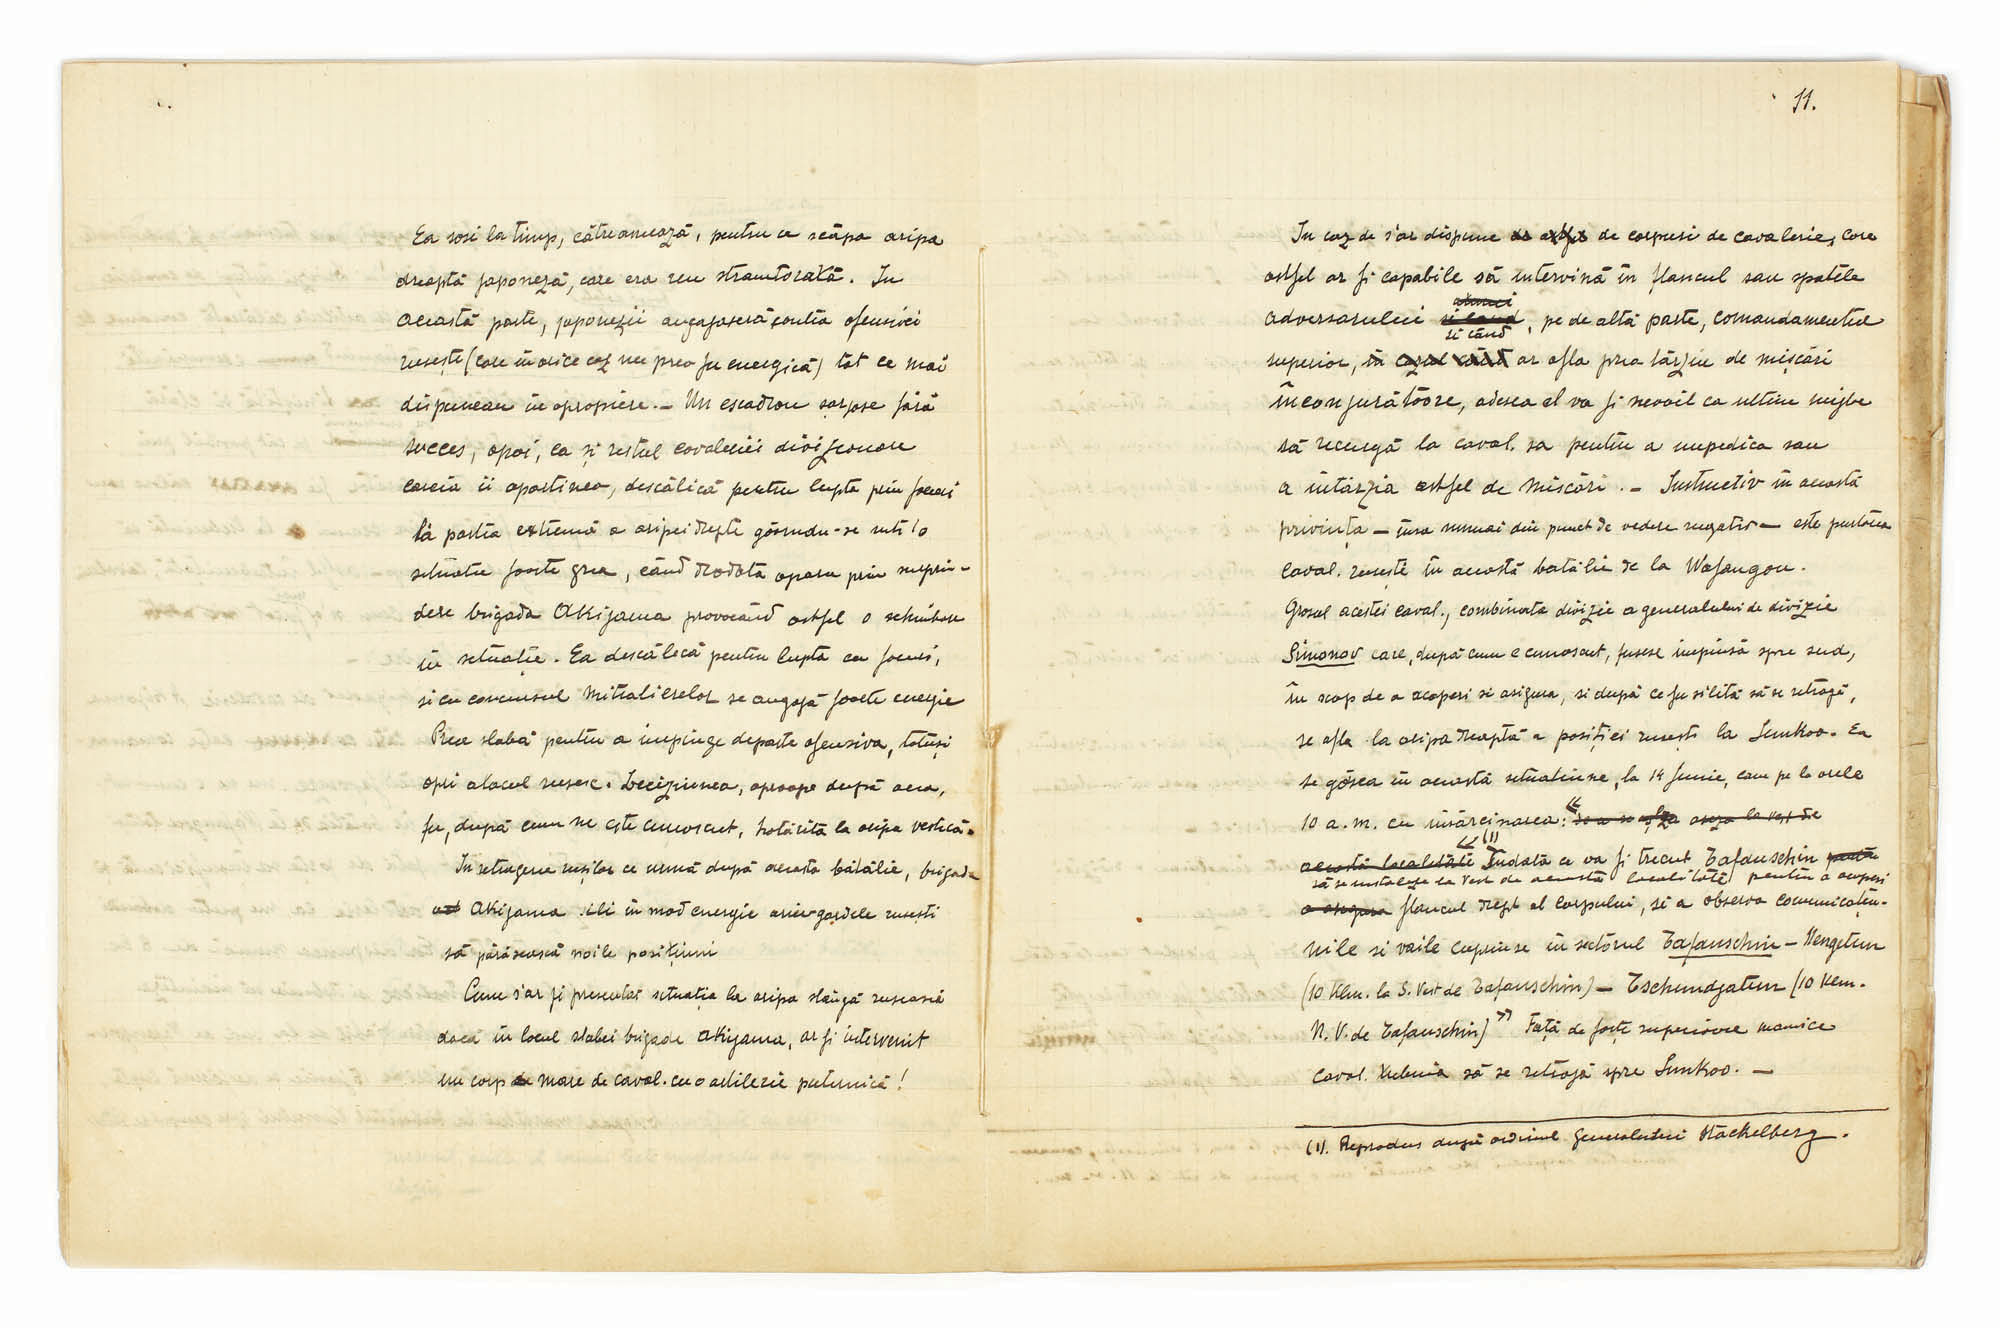 Ea sosi la timp, cătreameazã, pentru a scăpa aripa
dreaptă japoneză, care era reu strâmtorată. In
această parte, japonezii angajaseră contra ofensivei
rusești (care in orice caz nu prea fu energică) tot ce mai
dispuneau in apropiere. — Un escadron șarjase fără
succes, apoi, ca și restul cavaleriei divizionare
careia ii apartinea, descălică pentru lupta prin focuri
la partea extremă a aripei drepte găsindu-se intr'o
situatie foarte grea, când deodata aparu prin surprin-
dere brigada Akijama provocând astfel o schimbare
in situație. Ea descălecă pentru lupta cu focuri,
si cu concursul mitralierelor se angajă foarte energic
Prea slabă pentru a impinge departe ofensiva, totuși
opri atacul rusesc. Deciziunea, aproape după aceea,
fu, după cum ne este cunoscut, hotărâtă la aripa vestică.
In retragerea rușilor ce urmă după aceasta bătălie, brigada
Akijama sili in mod energic arier-gardele rusești
să părăsească noile pozițiuni
Cum s'ar fi presentat situația la aripa stângă ruseasă
dacă in locul slabei brigade Akijama, ar fi intervenit
un corp mare de caval. cu o artilerie puternică!
11.
In caz de s'ar dispune de corpuri de cavalerie, care
astfel ar fi capabile să intervină in flancul sau spatele
adversarului, pe de altă parte, comandamentul
si când
superior, ar afla prea târziu de mișcări
inconjurătoare, adesea el va fi nevoit ca ultim mijloc
să recurgă la caval. sa pentru a impedica sau
a intârzia astfel de miscări. — Instructiv in această
privința — insa numai din punct de vedere negativ — este purtarea
caval. ruseste in această batălie de la Wafangou.
Grosul acestei caval., combinata divizie a generalului de divizie
Simonov care, după cum e cunoscut, fusese impinsă spre sud,
in scop de a acoperi si asigura, si după ce fu silită să se retragă,
se afla la aripa dreaptă a poziției rusești la Sunkoo. Ea
se găsea in această situatiune, la 14 Junie, cam pe la orele
10 a. m. cu insărcinarea:
« (1) Indată ce va fi trecut Tafanschin
să se instaleze la vest de această localitate pentru a acoperi
flancul drept al Corpului, si a observa comunicațiu-
nile si vaile cuprinse in sectorul Tafanschin — Wengetun
(10 Klm. la S. Vest de Tafanschin) — Tschundgatun (10 Klm.
N. V. de Tafanschin) » Față de forțe superioare inamice
caval. trebuia să se retragă spre Sunkoo. —
(1). Reprodus după ordinul Generalului Stackelberg.